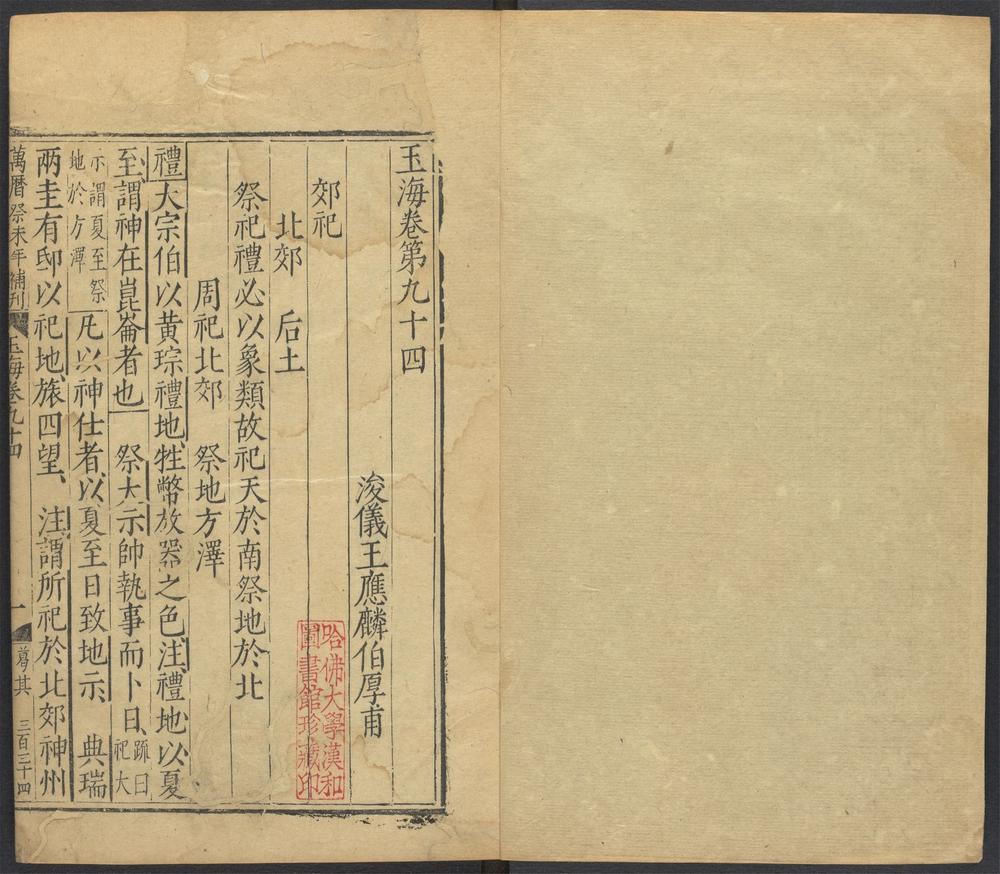 玉海卷第九十四
浚儀王應麟伯厚甫
郊祀
北郊　后土
祭祀禮必以象類故祀天於南祭地於北
周祀北郊　祭地方澤
禮大宗伯以黄琮禮地、牲幣放器之色、注、禮地、以夏
至、謂神在崑崙者也　祭大示帥執事而卜日、疏曰祀大
示謂夏至祭地於方澤　凡以神仕者、以夏至日致地示、　典瑞
兩圭有邸以祀地、旅四望、注、謂所祀於北郊神州
萬曆癸未年補刊　玉海卷九十四　一　三百三十四
哈佛大學漢和
圖書館珍藏印